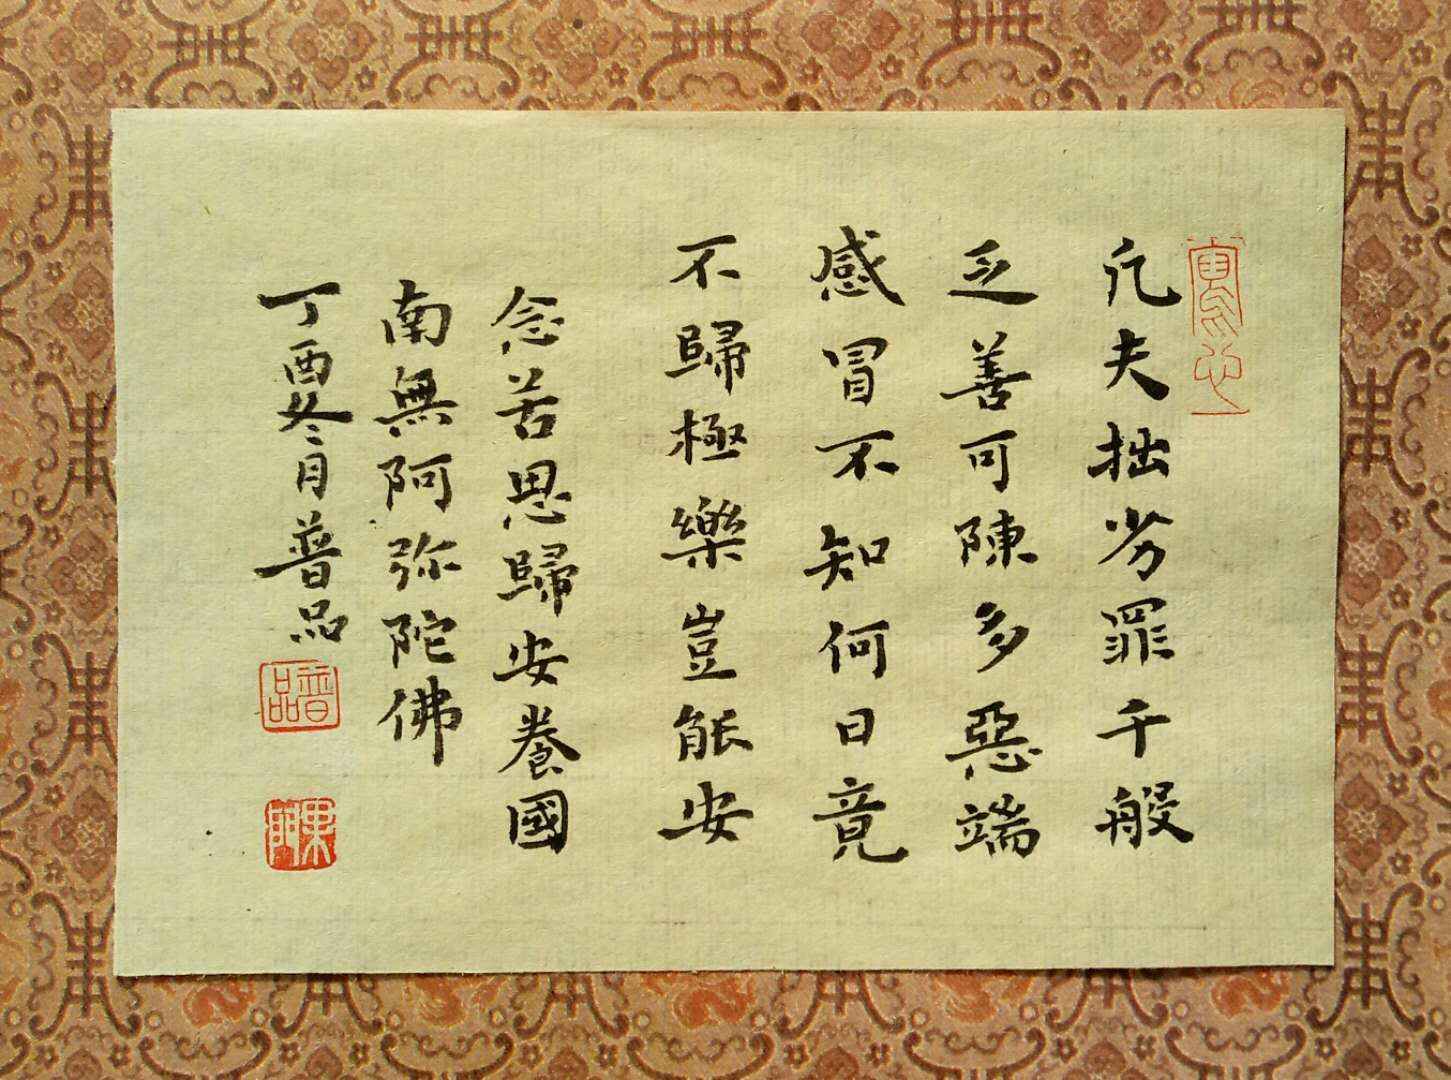 凡夫拙劣罪千般
乏善可陳多惡端
感冒不知何日竟
不歸極樂豈能安
念苦思歸安養國
南無阿弥陀佛
丁酉冬月普品
普品